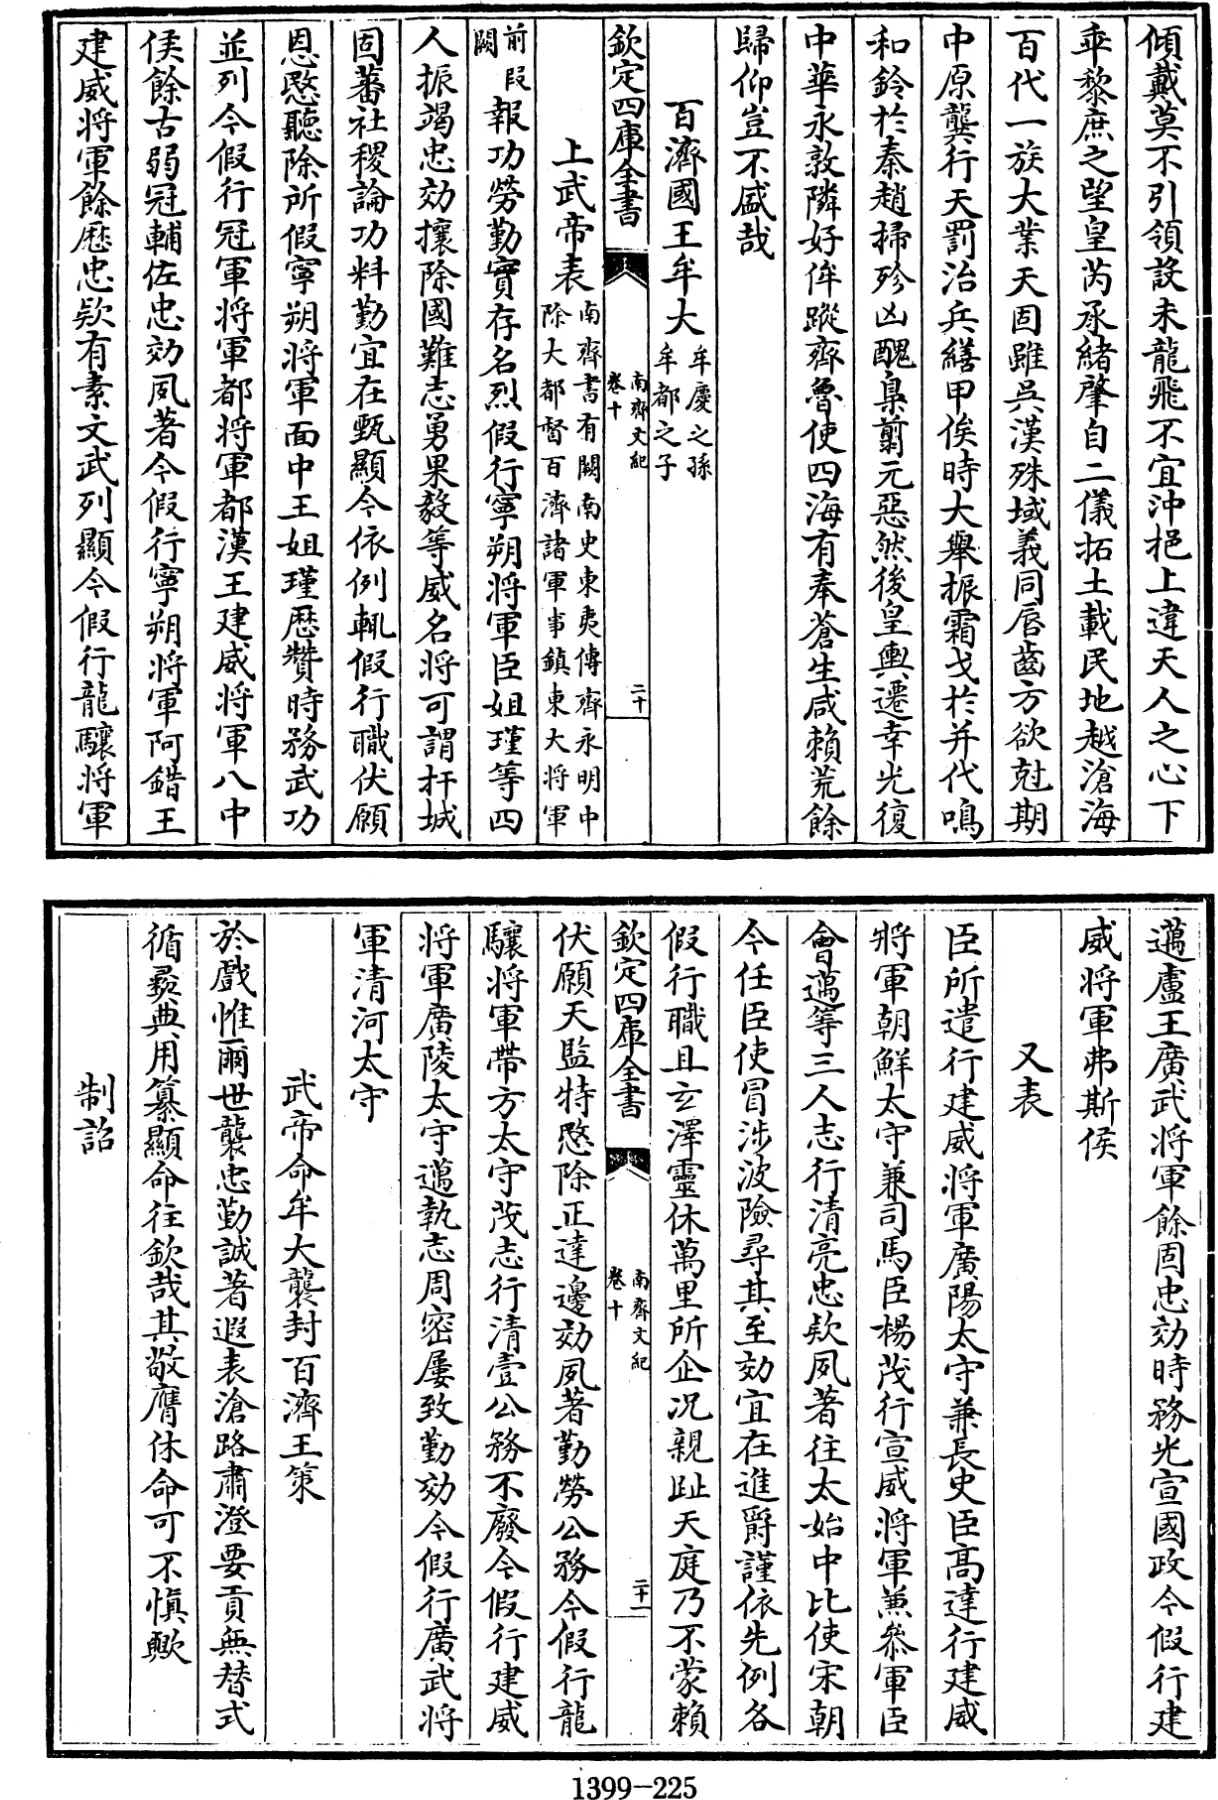 傾戴莫不引領設未龍飛不宜沖挹上違天人之心下
乖黎庶之望皇芮承緒肇自二儀拓土載民地越滄海
百代一族大業天固雖吳漢殊域義同脣齒方欲尅期
中原龔行天罰治兵繕甲俟時大舉振霜戈於并代鳴
和鈴於秦趙掃殄凶醜梟翦元惡然後皇輿遷幸光復
中華永敦隣好侔蹤齊魯使四海有奉蒼生咸賴荒餘
歸仰豈不盛哉
百濟國王牟大牟慶之孫牟都之子
欽定四庫全書
南齊文紀
卷十
二十
上武帝表南齊書有闕南史東夷傳齊永明中除大都督百濟諸軍事鎮東大將軍
前叚闕報功勞勤實存名烈假行寧朔將軍臣姐瑾等四
人振竭忠効攘除國難志勇果毅等威名將可謂扞城
固蕃社稷論功料勤宜在甄顯今依例輒假行職伏願
恩愍聽除所假寧朔將軍面中王姐瑾歷贊時務武功
並列今假行冠軍將軍都將軍都漢王建威將軍八中
侯餘古弱冠輔佐忠効夙著今假行寧朔將軍阿錯王
建威將軍餘歷忠欵有素文武列顯今假行龍驤將軍
邁盧王廣武將軍餘固忠効時務光宣國政今假行建
威將軍弗斯侯
又表
臣所遣行建威將軍廣陽太守兼長史臣高達行建威
將軍朝鮮太守兼司馬臣楊茂行宣威將軍兼叅軍臣
會邁等三人志行清亮忠欵夙著往太始中比使宋朝
今任臣使冒涉波險尋其至効宜在進爵謹依先例各
假行職且玄澤靈休萬里所企况親趾天庭乃不蒙賴
欽定四庫全書
南齊文紀
卷十
二十一
伏願天監特愍除正達邊効夙著勤勞公務今假行龍
驤將軍帶方太守茂志行清壹公務不廢今假行建威
將軍廣陵太守邁執志周密屢致勤効今假行廣武將
軍清河太守
武帝命牟大襲封百濟王策
於戲惟爾世襲忠勤誠著遐表滄路肅澄要貢無替式
循彛典用纂顯命往欽哉其敬膺休命可不慎歟
制詔
1399-225